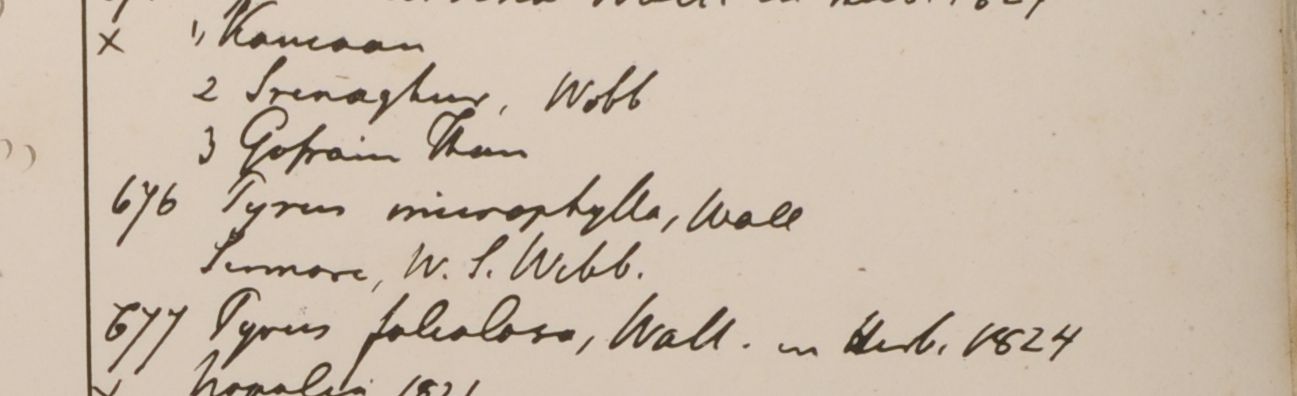 Wall. in Herb. 1821
x " Kamaon
2 Srenaghur, Webb
3 Gosain Than
676 Pyrus microphylla, Wall
Sirmore, W. S. Webb.
677 Pyrus foliolosa, Wall. in Herb. 1824
x Napalia 1821